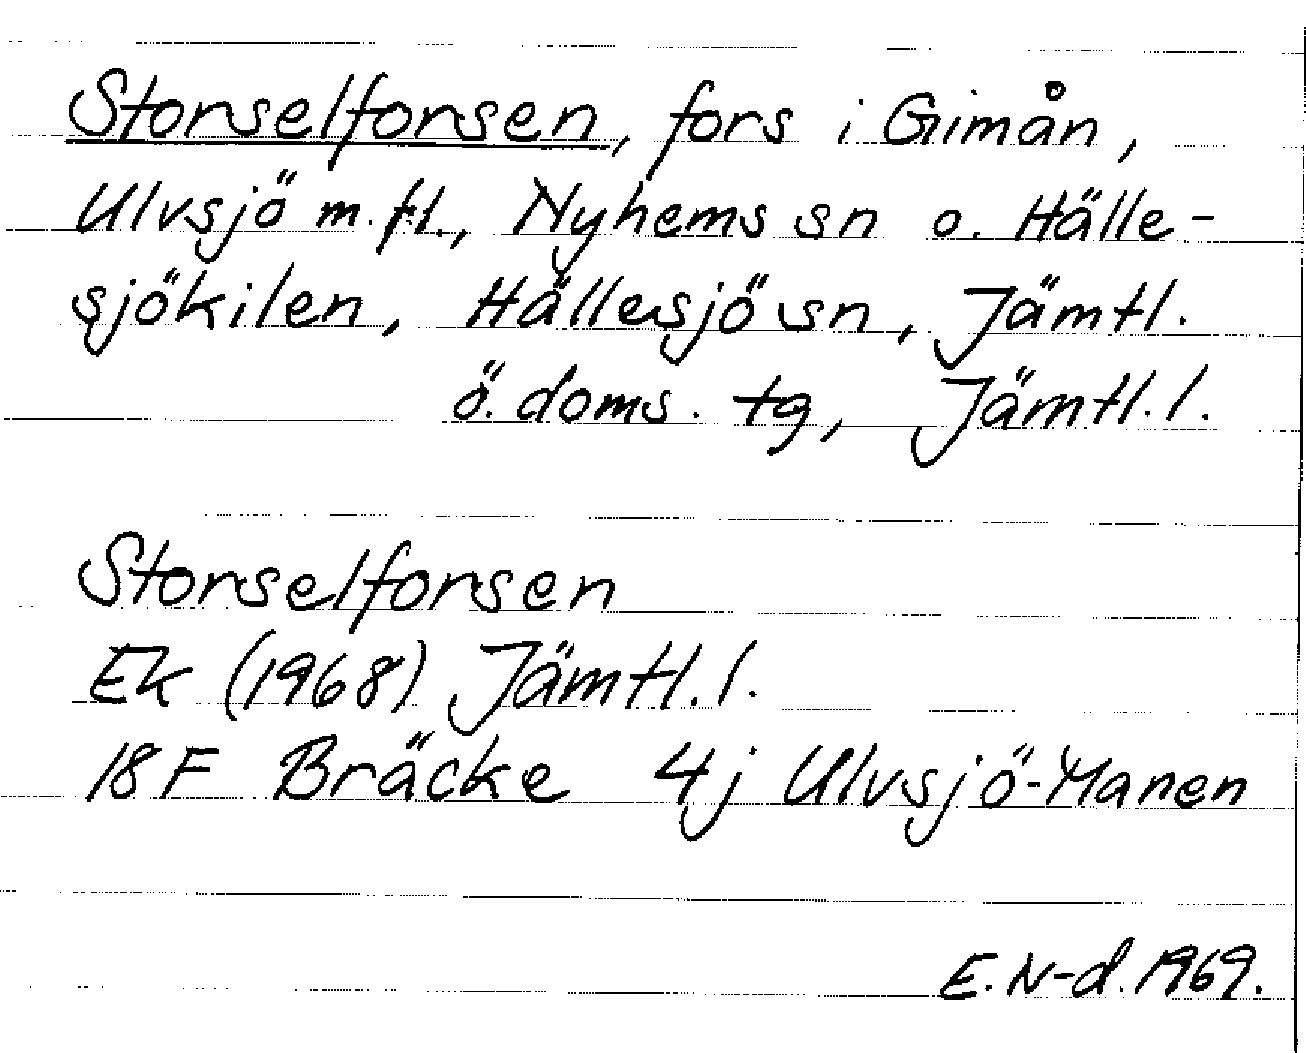 Storselforsen, fors i Gimån,
Ulvsjö m.fl., Nyhems sn o. Hälle-
sjökilen, Hällesjö sn, Jämtl.
ö. doms. tg, Jämtl. l.
Storselforsen
Ek (1968) Jämtl. l.
18 F Bräcke 4j Ulvsjö-Manen
E. N-d. 1969.